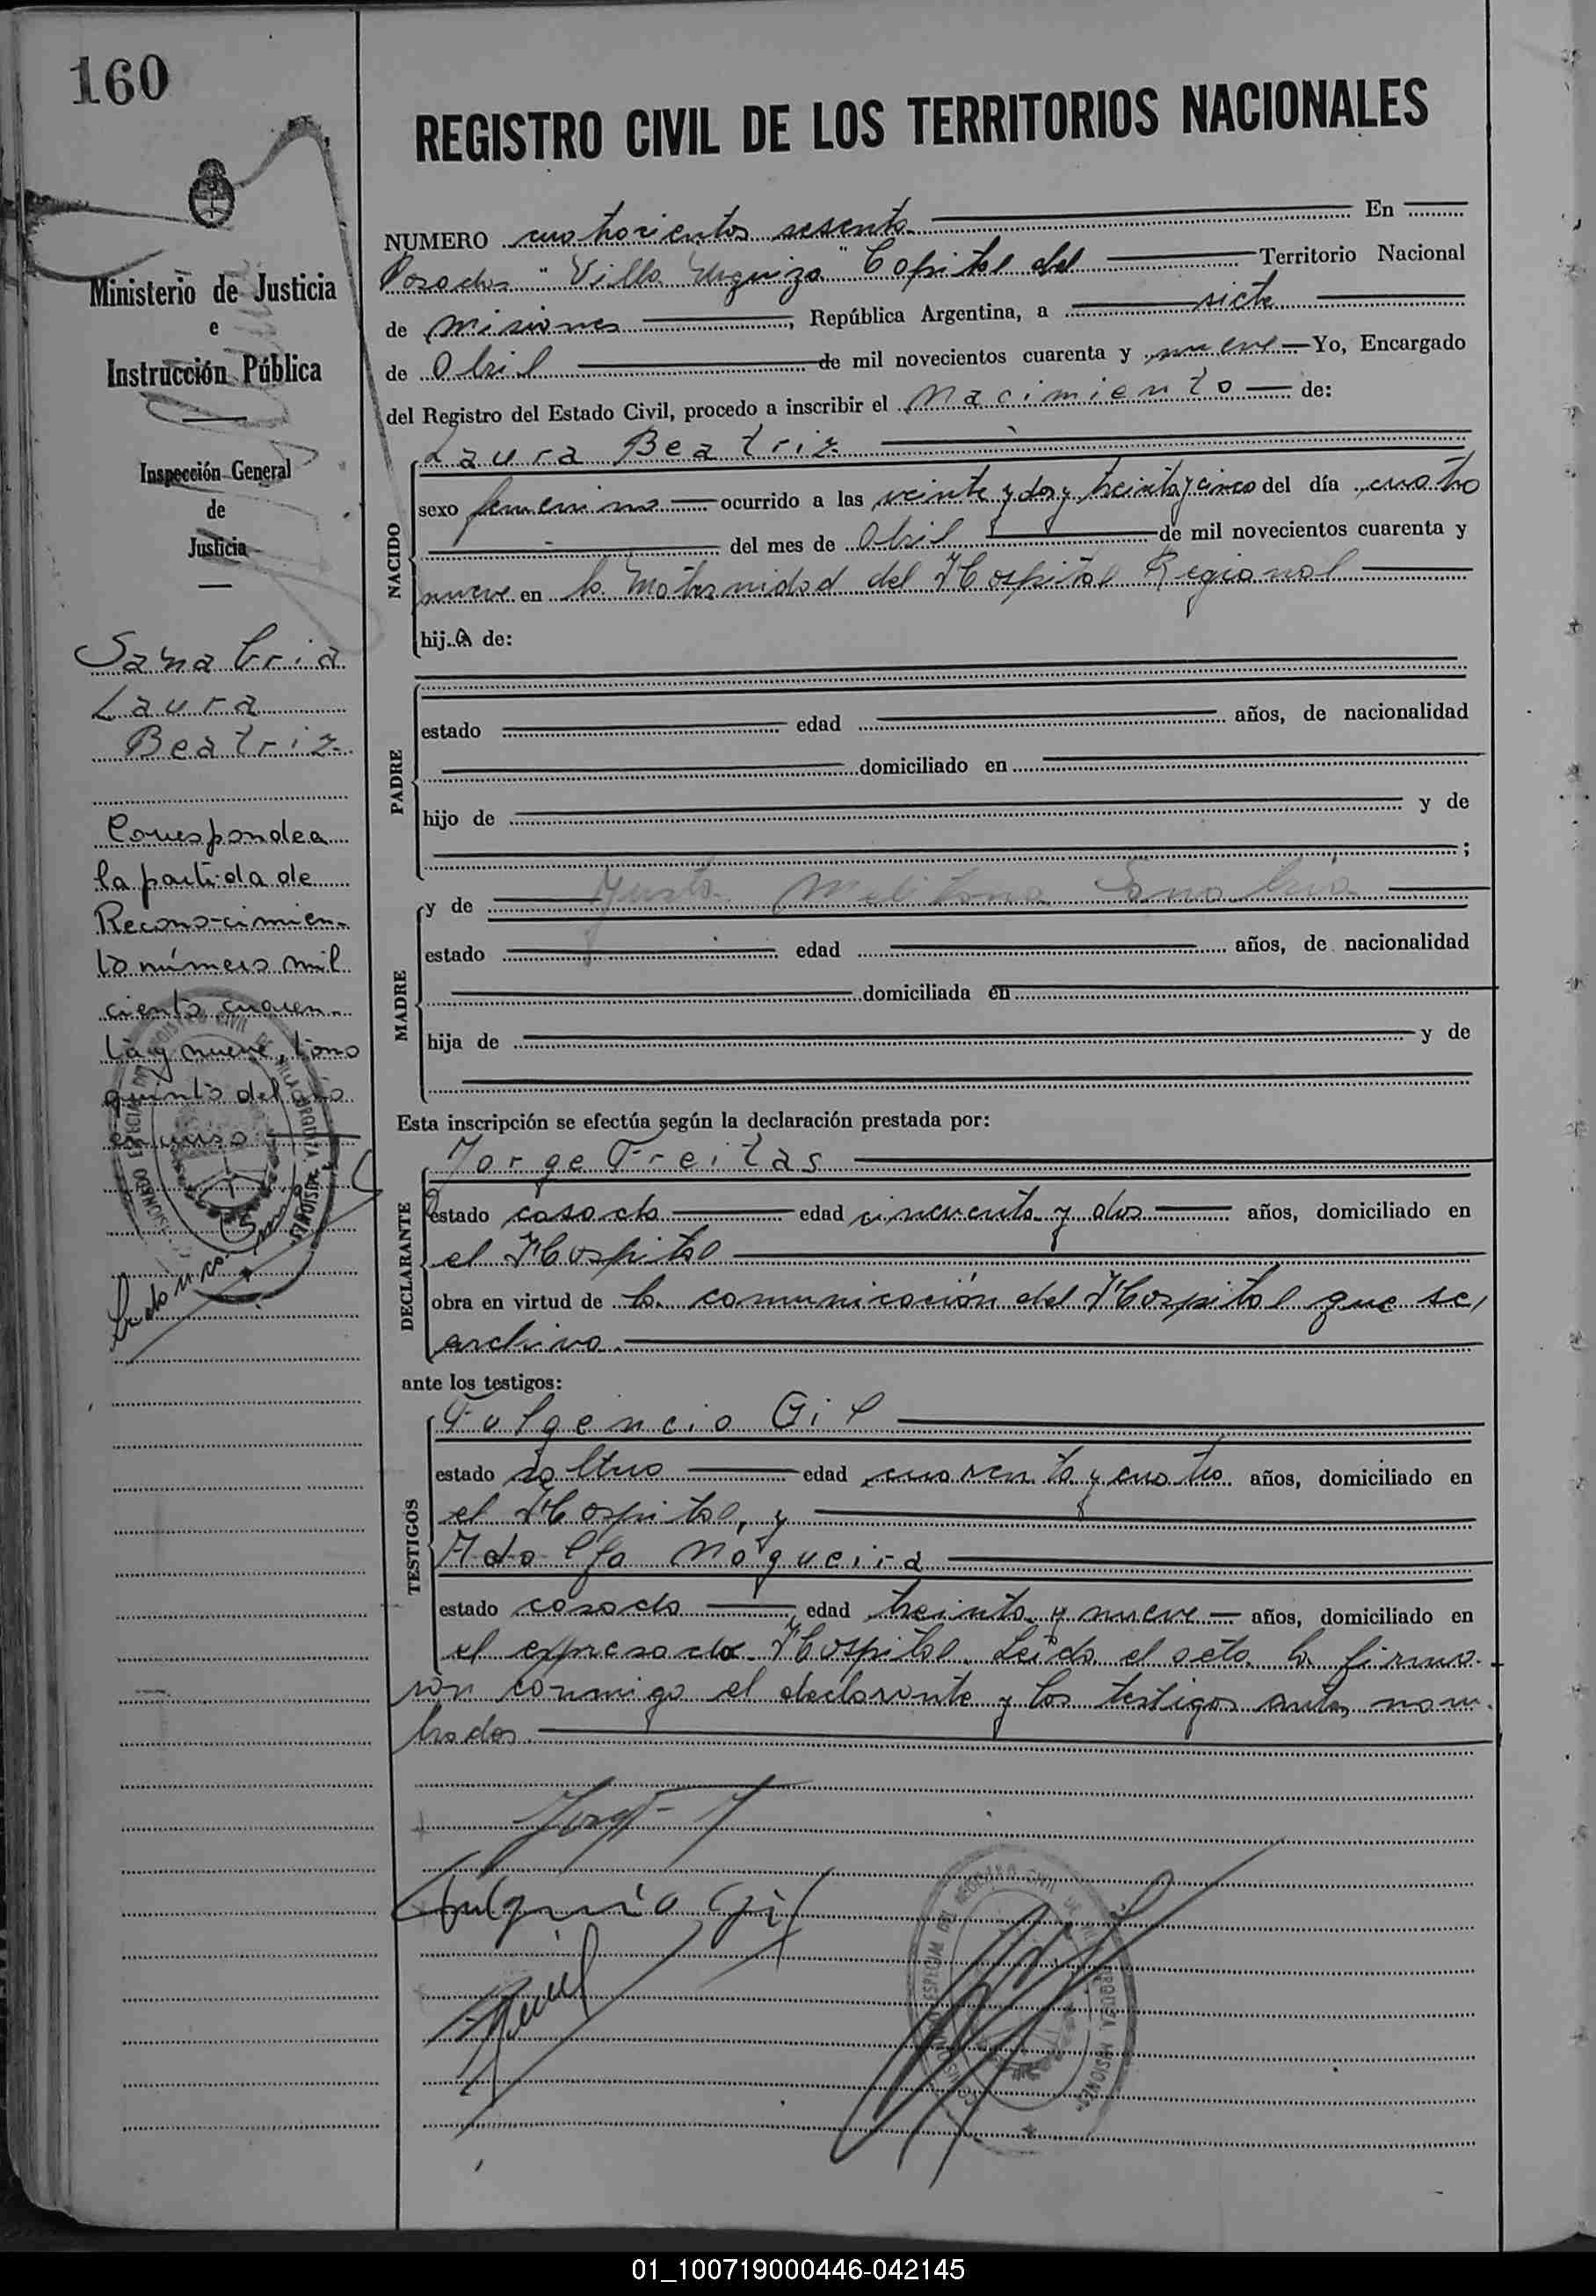 160
REGISTRO CIVIL DE LOS TERRITORIOS NACIONALES
Ministerio de Justicia
e
Instrucción Pública
Inspección General
de
Justicia
Sanabria
Laura
Beatriz
Corresponde a
la partida de
Reconocimien-
to número mil
ciento cuaren-
ta y nueve, tomo
quinto del año
en curso
NUMERO cuatrocientos sesenta En
Posadas "Villa Urquiza" Capital del Territorio Nacional
de Misiones, República Argentina, a siete
de Abril de mil novecientos cuarenta y nueve Yo, Encargado
del Registro del Estado Civil, procedo a inscribir el Nacimiento de:
Laura Beatriz
NACIDO
sexo femenino ocurrido a las veinte y dos y treinta y cinco del día cuatro
del mes de Abril de mil novecientos cuarenta y
nueve en la Maternidad del Hospital Regional
hija de:
PADRE
estado edad años, de nacionalidad
domiciliado en
hijo de y de
;
MADRE
y de Justa Melitona Sanabria
estado edad años, de nacionalidad
domiciliada en
hija de y de
Esta inscripción se efectúa según la declaración prestada por:
DECLARANTE
Jorge Freitas
estado casado edad cincuenta y dos años, domiciliado en
el Hospital
obra en virtud de la comunicación del Hospital que se
archiva.
ante los testigos:
TESTIGOS
Fulgencio Gil
estado soltero edad cuarenta y cuatro años, domiciliado en
el Hospital, y
Adolfo Nogueira
estado casado edad treinta y nueve años, domiciliado en
el expresado Hospital. Leida el acta la firma-
ron conmigo el declarante y los testigos antes nom-
brados.
Fulgencio Gil
01_100719000446-042145